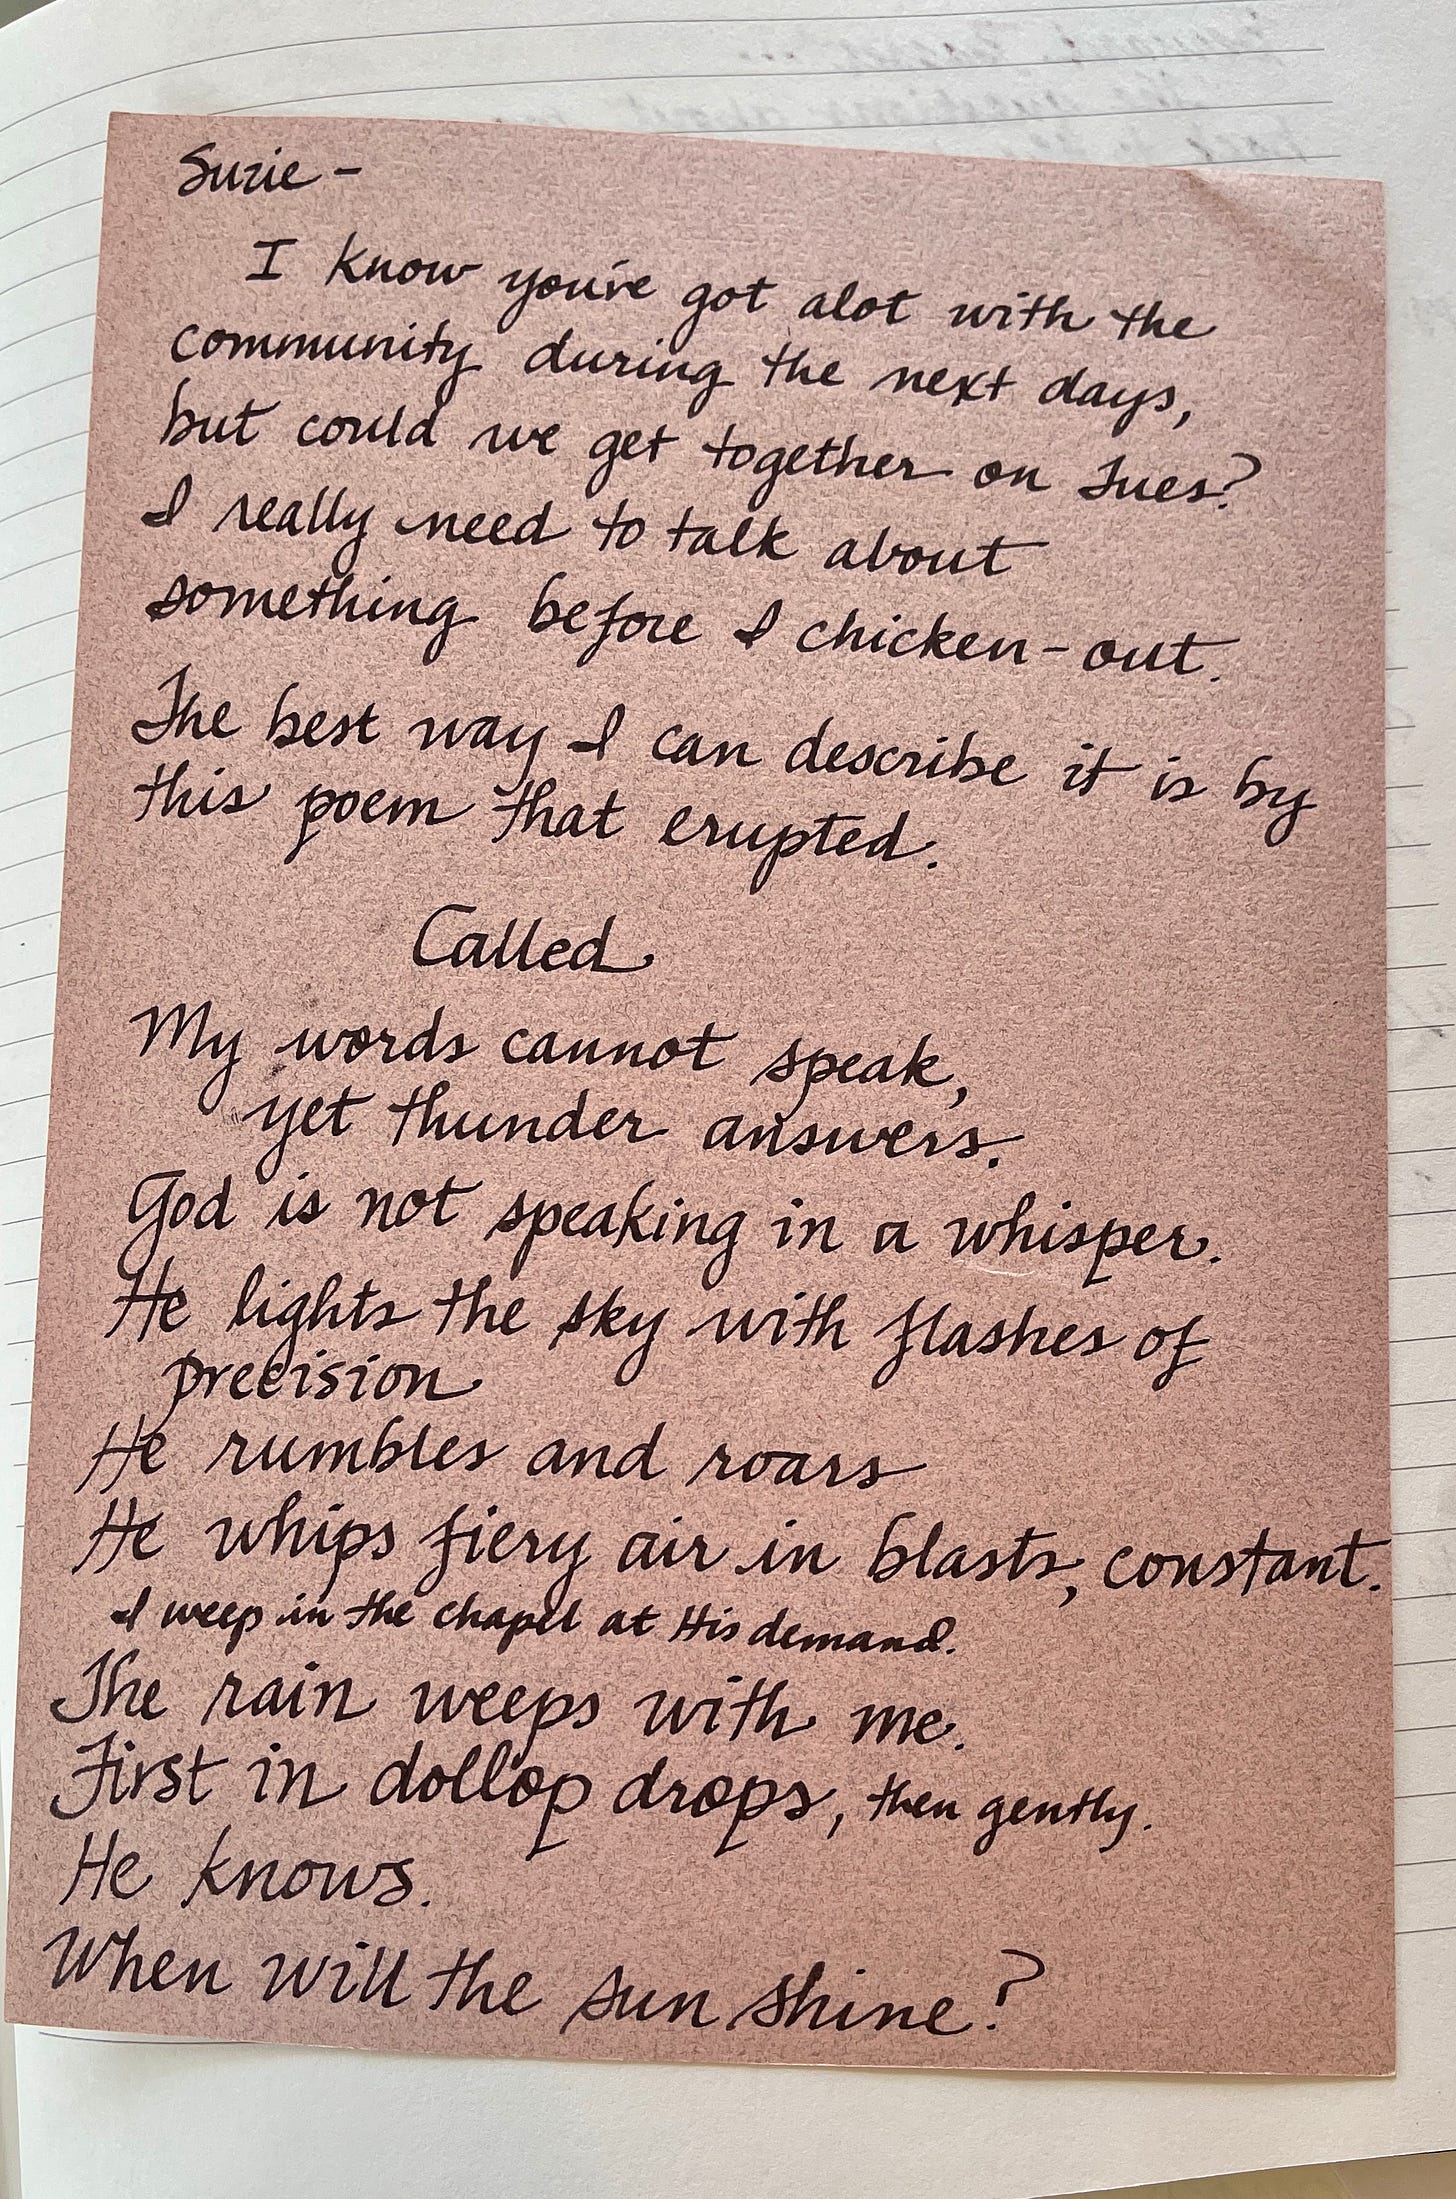 Suzie -
I know you've got alot with the
community during the next days,
but could we get together on Tues?
I really need to talk about
something before I chicken-out.
The best way I can describe it is by
this poem that erupted.
Called
My words cannot speak,
yet thunder answers.
God is not speaking in a whisper.
He lights the sky with flashes of
precision
He rumbles and roars
He whips fiery air in blasts, constant.
I weep in the chapel at His demand.
The rain weeps with me.
First in dollop drops, then gently.
He knows.
When will the sun shine?